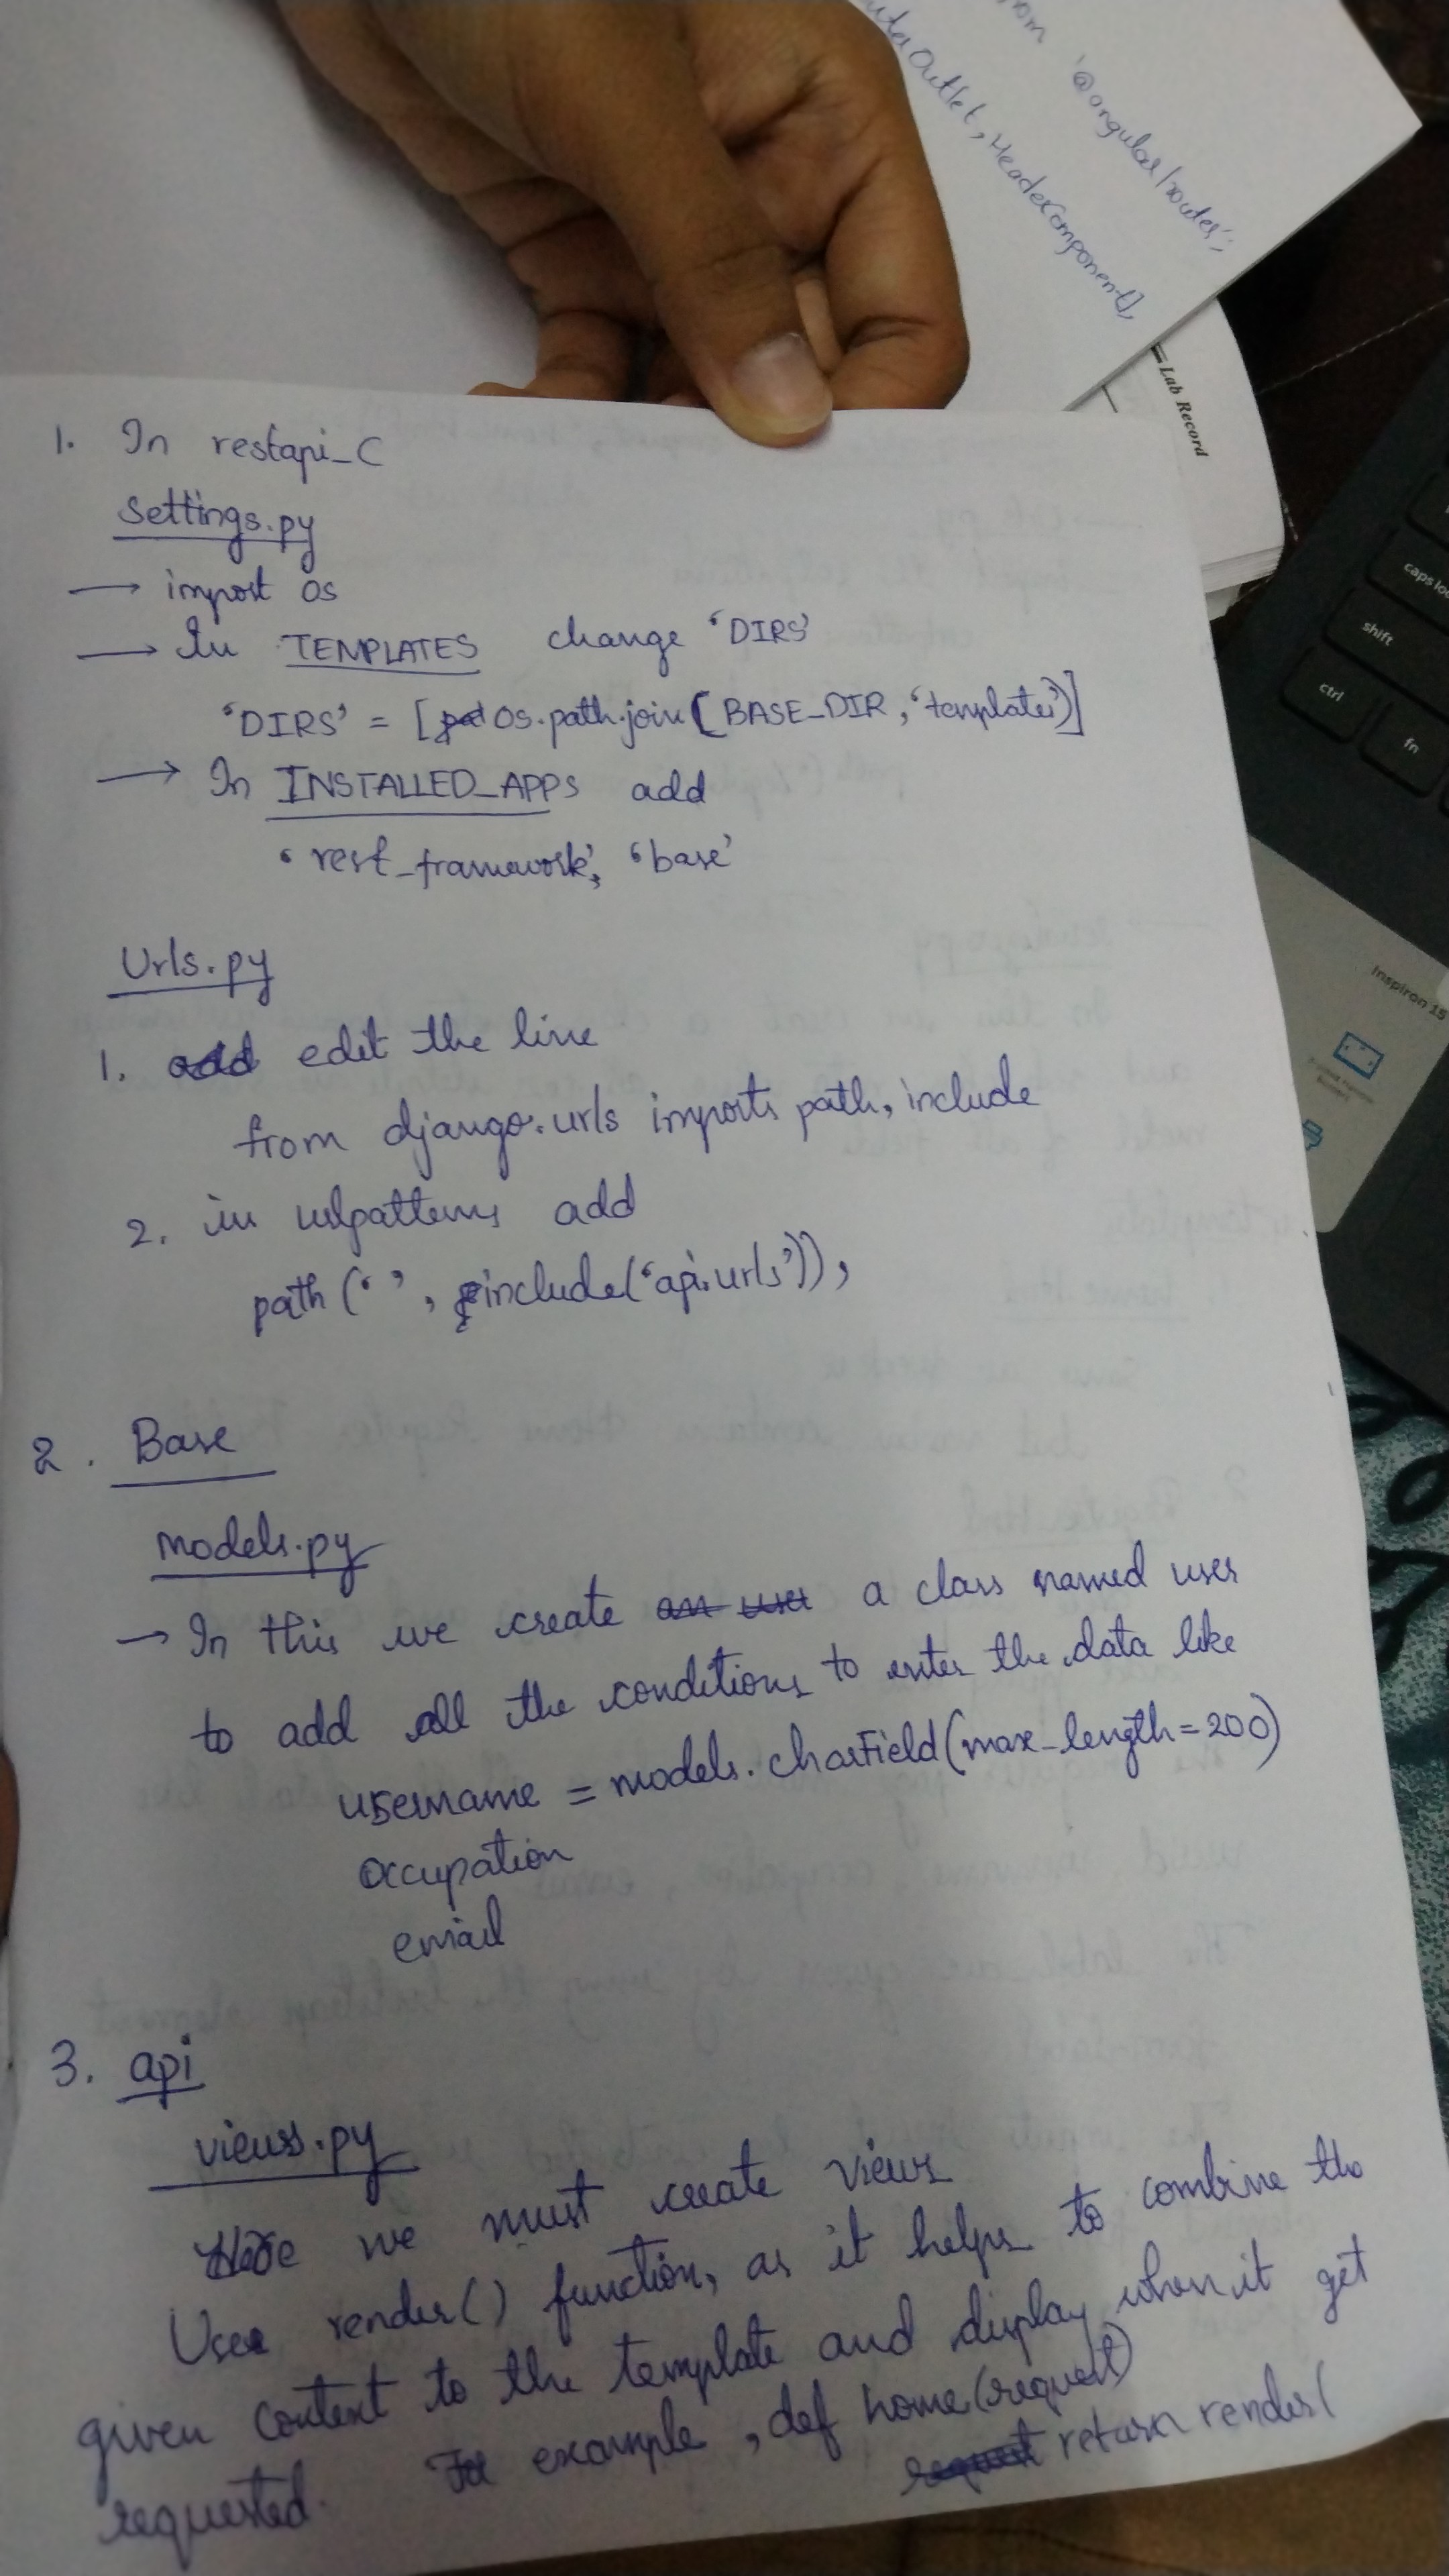 from '@angular/router';
uterOutlet, HeaderComponent],
Lab Record
1. In restapi_C
settings.py
→ import os
→ In TEMPLATES change 'DIRS'
'DIRS' = [os.path.join(BASE_DIR, 'templates')]
→ In INSTALLED_APPS add
'rest_framework', 'base'
Urls.py
1. edit the line
from django.urls imports path, include
2. in urlpatterns add
path('', include('api.urls')),
2. Base
models.py
→ In this we create a class named user
to add all the conditions to enter the data like
username = models.charField(max_length=200)
occupation
email
3. api
views.py
Here we must create views
Use render() function, as it helps to combine the
given content to the template and display when it get
requested. For example, def home(request)
return render(
caps lo
shift
ctrl
fn
Inspiron 15